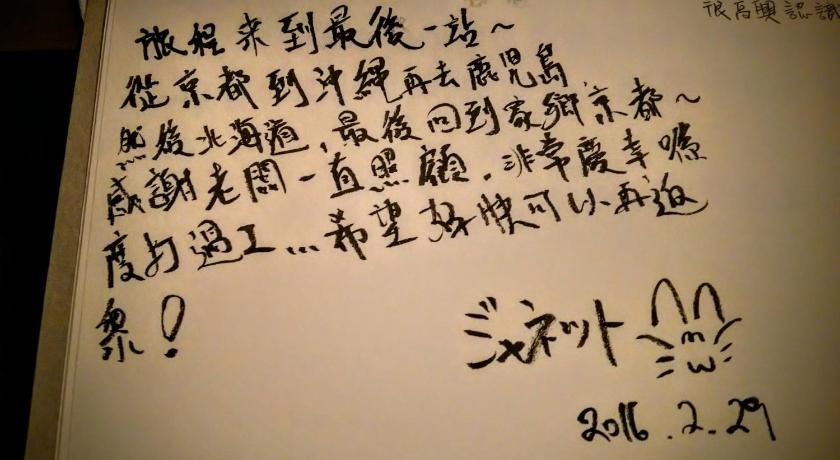 很高興認識
旅程来到最後一站~
從京都到沖縄再去鹿児島
然後北海道,最後回到家鄉京都~
感謝老闆一直照顧,非常慶幸喺
度打過工...希望好快可以再返
黎!
ジャネット
2016.2.29